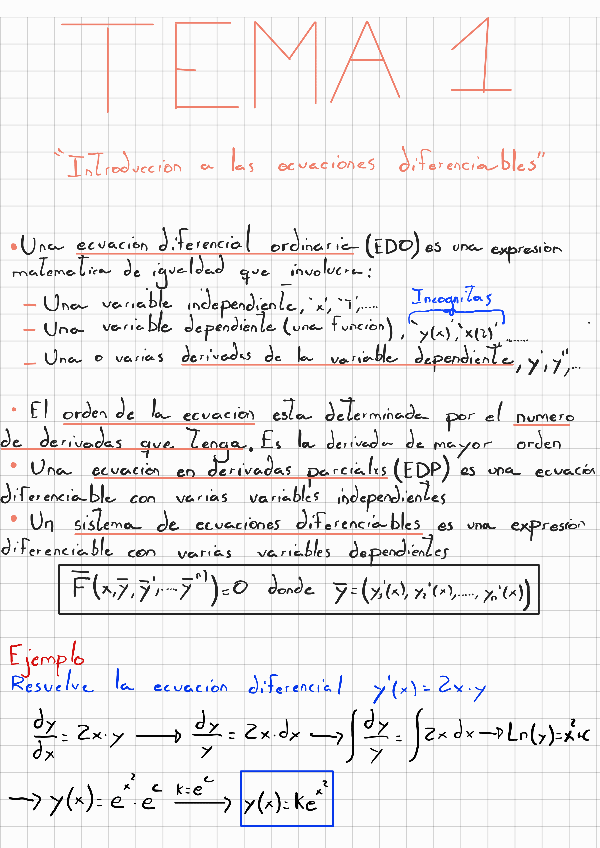 TEMA 1
"Introduccion a las ecuaciones diferenciables"
• Una ecuación diferencial ordinaria (EDO) es una expresion
matematica de igualdad que involucra:
– Una variable independiente, 'x', 't',....
Incognitas
– Una variable dependiente (una función), 'y(x)', 'x(z)' ......
– Una o varias derivadas de la variable dependiente, y', y'',...
• El orden de la ecuación esta determinada por el numero
de derivadas que tenga. Es la derivada de mayor orden
• Una ecuación en derivadas parciales (EDP) es una ecuación
diferenciable con varias variables independientes
• Un sistema de ecuaciones diferenciables es una expresión
diferenciable con varias variables dependientes
F̅(x, y̅, y̅', .... y̅ⁿ⁾) = 0 donde y̅ = (y₁'(x), y₂'(x), ....., yₙ'(x))
Ejemplo
Resuelve la ecuación diferencial y'(x) = 2x·y
dy/dx = 2x·y → dy/y = 2x·dx → ∫ dy/y = ∫ 2x dx → Ln(y) = x² + c
→ y(x) = e^x² · e^c k=e^c → y(x) = ke^x²